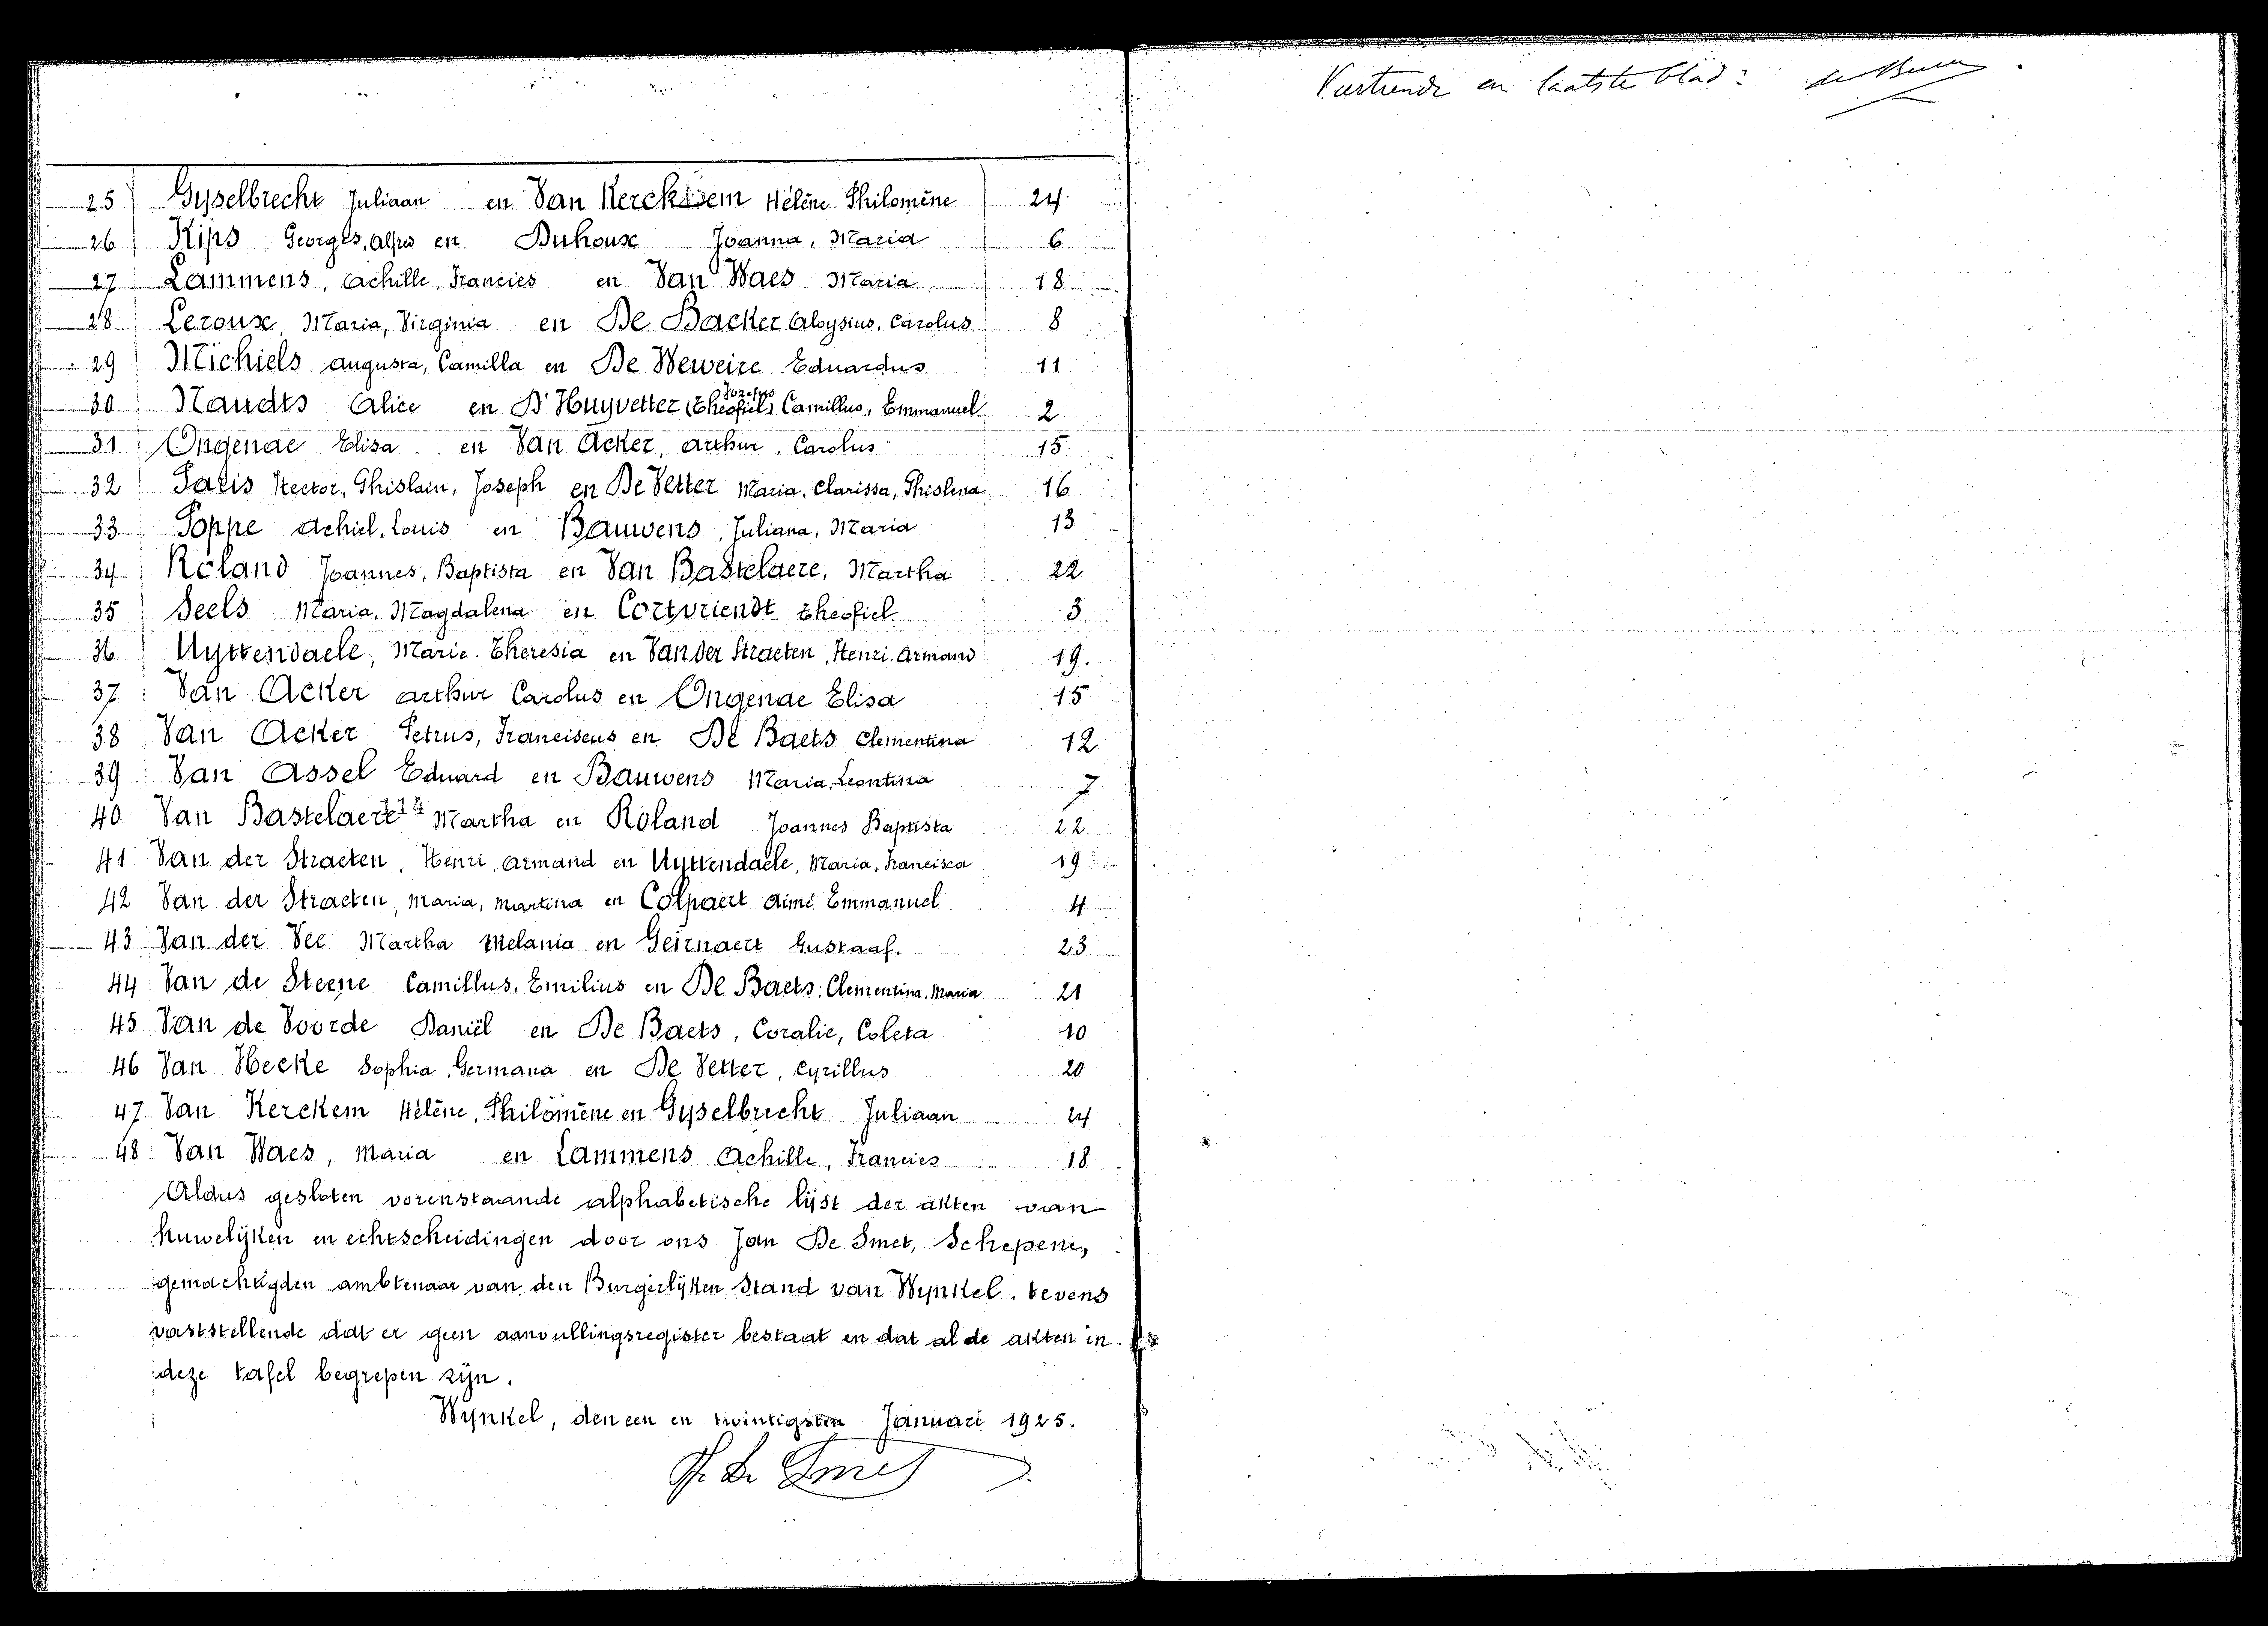 25 Gyselbrecht Juliaan en Van Kerckem Hélène Philomène 24
26 Kips Georges, Alfred en Duhoux Joanna, Maria 6
27 Lammens, Achille, Francies en Van Waes Maria 18
28 Leroux, Maria, Virginia en De Backer Aloysius, Carolus 8
29 Michiels Augusta, Camilla en De Weweire Eduardus 11
30 Naudts Alice en D'Huyvetter (Theofiel) Jozefus Camillus, Emmanuel 2
31 Ongenae Elisa en Van Acker, Arthur, Carolus 15
32 Paris Hector, Ghislain, Joseph en De Vetter Maria, Clarissa, Ghislena 16
33 Poppe Achiel, Louis en Bauwens, Juliana, Maria 13
34 Roland Joannes, Baptista en Van Bastelaere, Martha 22
35 Seels Maria, Magdalena en Cortvriendt Theofiel 3
36 Uyttendaele, Marie, Theresia en Van der Straeten, Henri, Armand 19.
37 Van Acker Arthur Carolus en Ongenae Elisa 15
38 Van Acker Petrus, Franciscus en De Baets Clementina 12
39 Van Assel Eduard en Bauwens Maria, Leontina 7
40 Van Bastelaere 14 Martha en Roland Joannes Baptista 22.
41 Van der Straeten, Henri, Armand en Uyttendaele, Maria, Francisca 19
42 Van der Straeten, Maria, Martina en Colpaert Aimé Emmanuel 4
43 Van der Vee Martha Melania en Geirnaert Gustaaf. 23
44 Van de Steene Camillus, Emilius en De Baets, Clementina, Maria 21
45 Van de Voorde Daniël en De Baets, Coralie, Coleta 10
46 Van Hecke Sophia, Germana en De Vetter, Cyrillus 20
47 Van Kerckem Hélène, Philomène en Gyselbrecht Juliaan 24
48 Van Waes, Maria en Lammens Achille, Francies 18
Aldus gesloten vorenstaande alphabetische lijst der akten van
huwelijken en echtscheidingen door ons Jan De Smet, Schepene,
gemachtigden ambtenaar van den Burgerlijken Stand van Wynkel, tevens
vaststellende dat er geen aanvullingsregister bestaat en dat al de akten in
deze tafel begrepen zijn.
Wynkel, den een en twintigsten Januari 1925.
J. De Smet
en laatste blad: